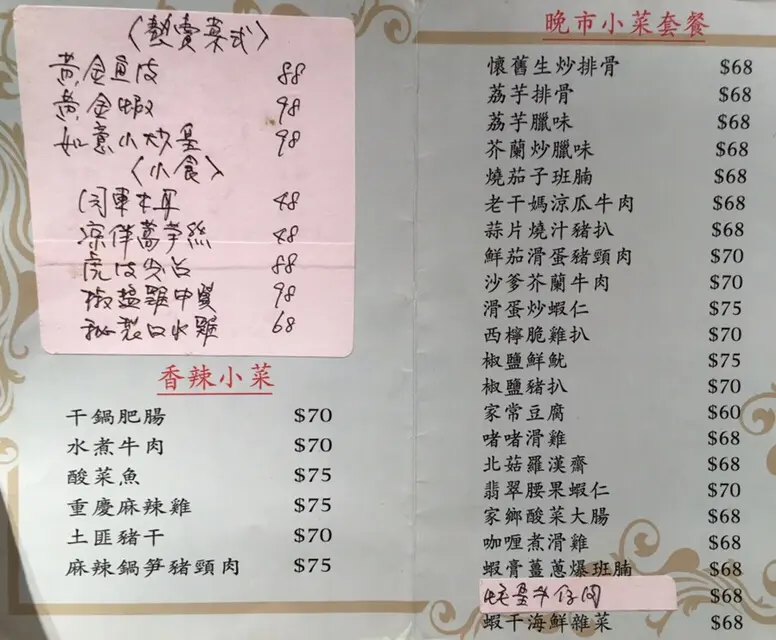 〈熱賣菜式〉
黃金魚皮 88
黃金蝦 98
如意小炒皇 98
〈小食〉
48
涼伴萵笋絲 48
虎皮尖椒 88
椒鹽雞中翼 98
秘製口水雞 68
香辣小菜
干鍋肥腸 $70
水煮牛肉 $70
酸菜魚 $75
重慶麻辣雞 $75
土匪豬干 $70
麻辣鍋笋豬頸肉 $75
晚市小菜套餐
懷舊生炒排骨 $68
荔芋排骨 $68
荔芋臘味 $68
芥蘭炒臘味 $68
燒茄子班腩 $68
老干媽涼瓜牛肉 $68
蒜片燒汁豬扒 $68
鮮茄滑蛋豬頸肉 $70
沙爹芥蘭牛肉 $70
滑蛋炒蝦仁 $75
西檸脆雞扒 $70
椒鹽鮮魷 $75
椒鹽豬扒 $70
家常豆腐 $60
啫啫滑雞 $68
北菇羅漢齋 $68
翡翠腰果蝦仁 $70
家鄉酸菜大腸 $68
咖喱煮滑雞 $68
蝦膏薑蔥爆班腩 $68
牛仔肉 $68
蝦干海鮮雜菜 $68